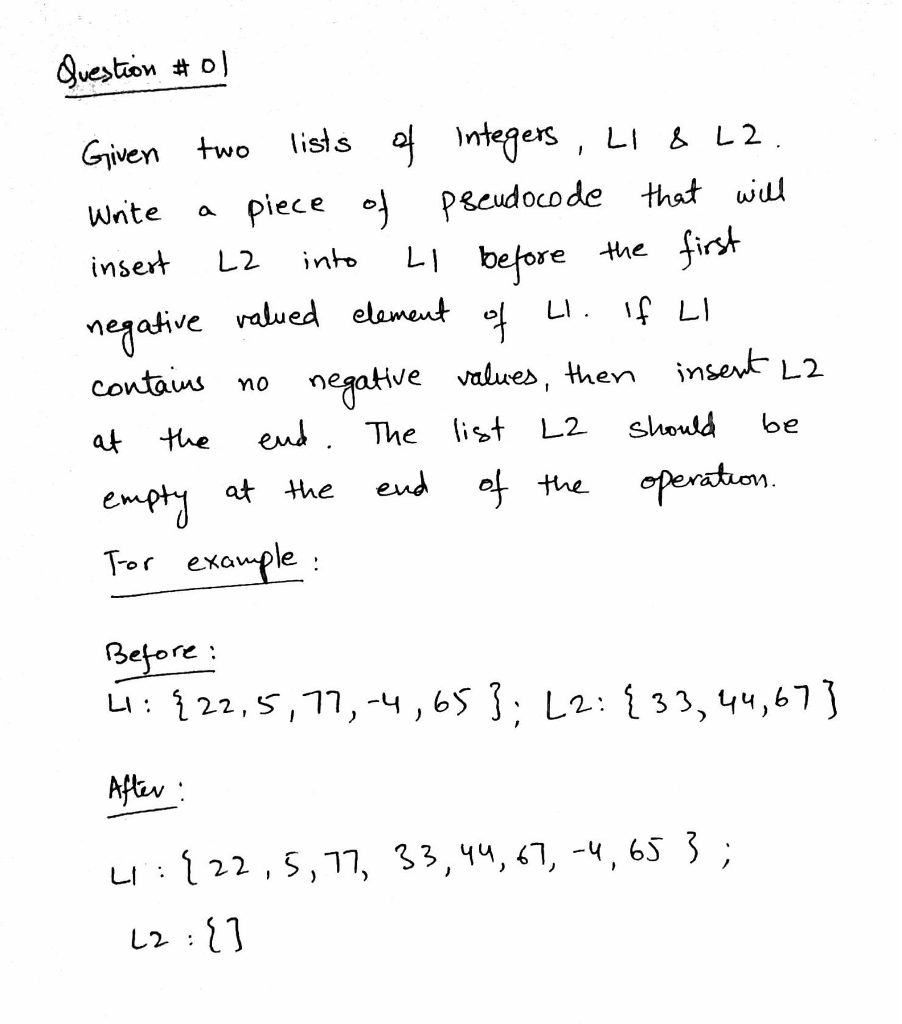 Question # 01
Given two lists of Integers, L1 & L2.
Write a piece of pseudocode that will
insert L2 into L1 before the first
negative valued element of L1. If L1
contains no negative values, then insert L2
at the end. The list L2 should be
empty at the end of the operation.
For example:
Before:
L1: {22,5,77,-4,65}; L2: {33,44,67}
After:
L1: {22,5,77,33,44,67,-4,65};
L2: {}